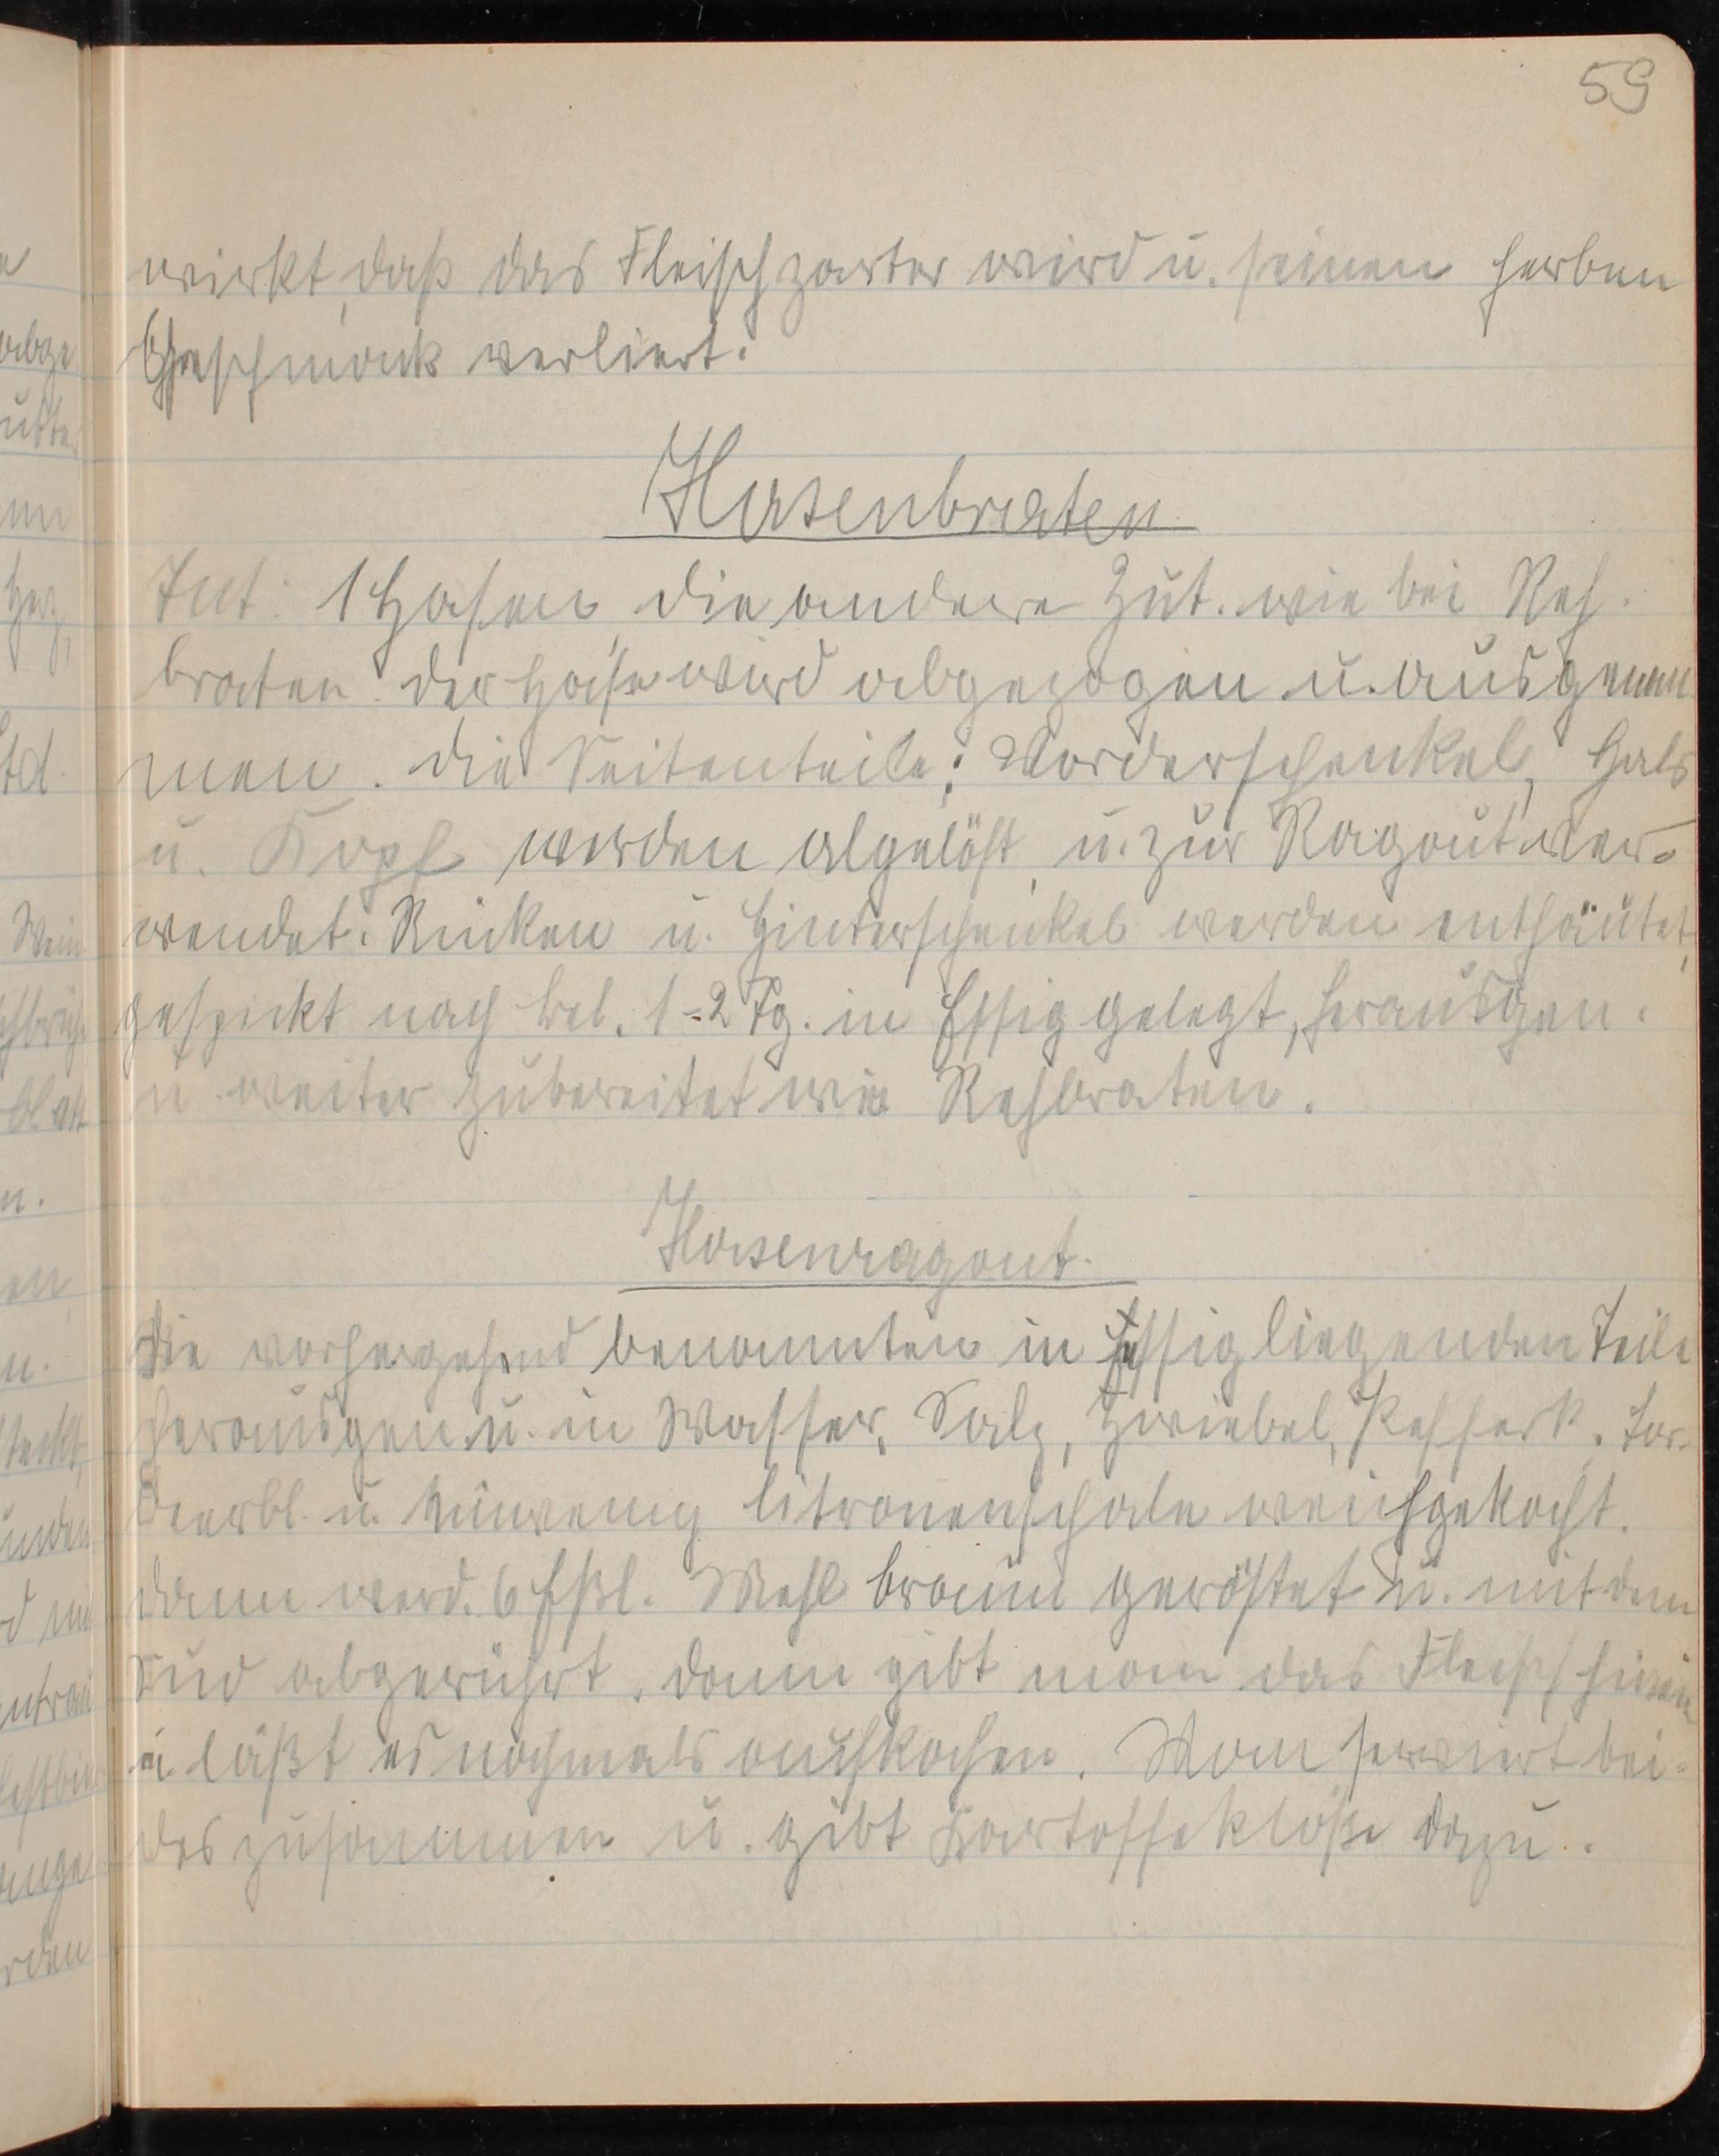 59
wirkt, daß das Fleisch zarter wird u. seinen herben
Geschmack verliert.
Hasenbraten
Zut: 1 Hasen, die andere Zut. wie bei Reh-
braten. Der Hase wird abgezogen u. ausgenom
men. Die Seitenteile; Vorderschenkel, Hals
u. Kopf werden abgelöst, u. zur Ragout ver-
wendet. Rücken u. Hinterschenkel werden enthäutet,
gespickt nach bel. 1-2 Tg. in Essig gelegt, herausgen.
u. weiter zubereitet wie Rehbraten.
Hasenragout.
Die vorhergehend benannten in Essig liegenden Teile
herausgen. u. in Wasser, Salz, Zwiebel, Pfefferk. Lor-
beerbl. u. einwenig Citronenschale weichgekocht.
Dann werd. 6 Eßl. Mehl braun geröstet u. mit dem
Sud abgerührt. Dann gibt man das Fleisch hinein
u läßt es nochmals aufkochen. Man serviert bei-
des zusammen u. gibt Kartoffeklöße dazu.
e
abge
Herz,
td.
Wein
blatt
n.
en
n.
steckt,
unden
d
ange
rden